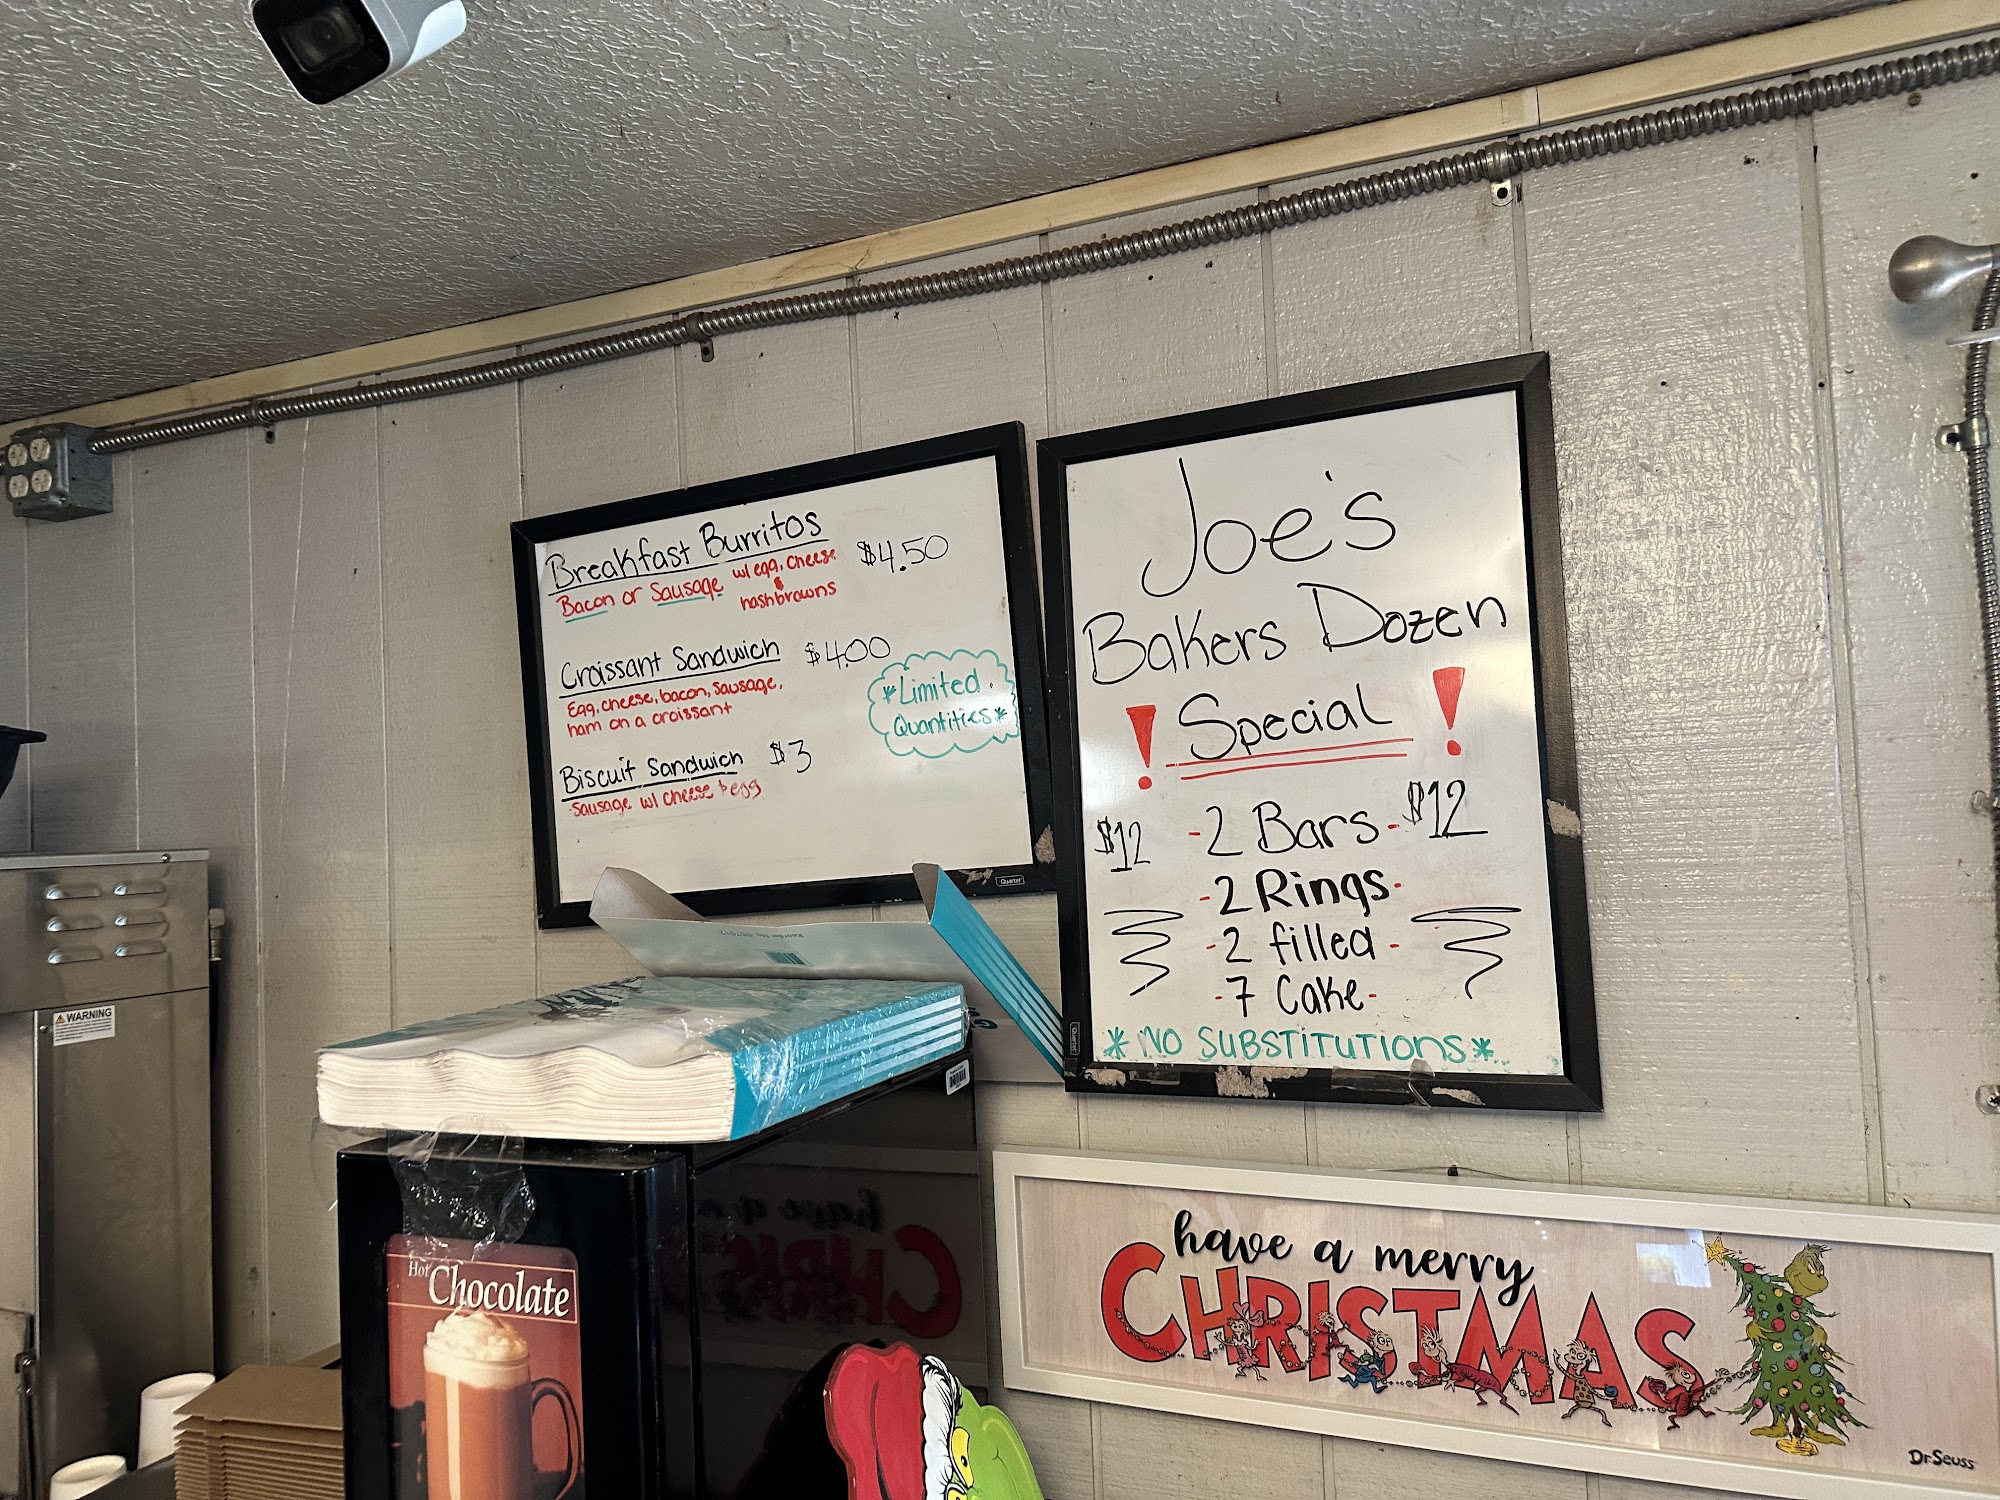 Breakfast Burritos $4.50
Bacon or Sausage w/ egg, cheese
&
hashbrowns
Croissant Sandwich $4.00
Egg, cheese, bacon, sausage,
ham on a croissant
*Limited
Quantities*
Biscuit Sandwich $3
Sausage w/ cheese & egg
Quartet
Joe's
Bakers Dozen
! Special !
$12 -2 Bars- $12
-2 Rings-
-2 filled-
-7 Cake-
*NO SUBSTITUTIONS*
Quartet
WARNING
Hot
Chocolate
have a merry
CHRISTMAS
Dr. Seuss